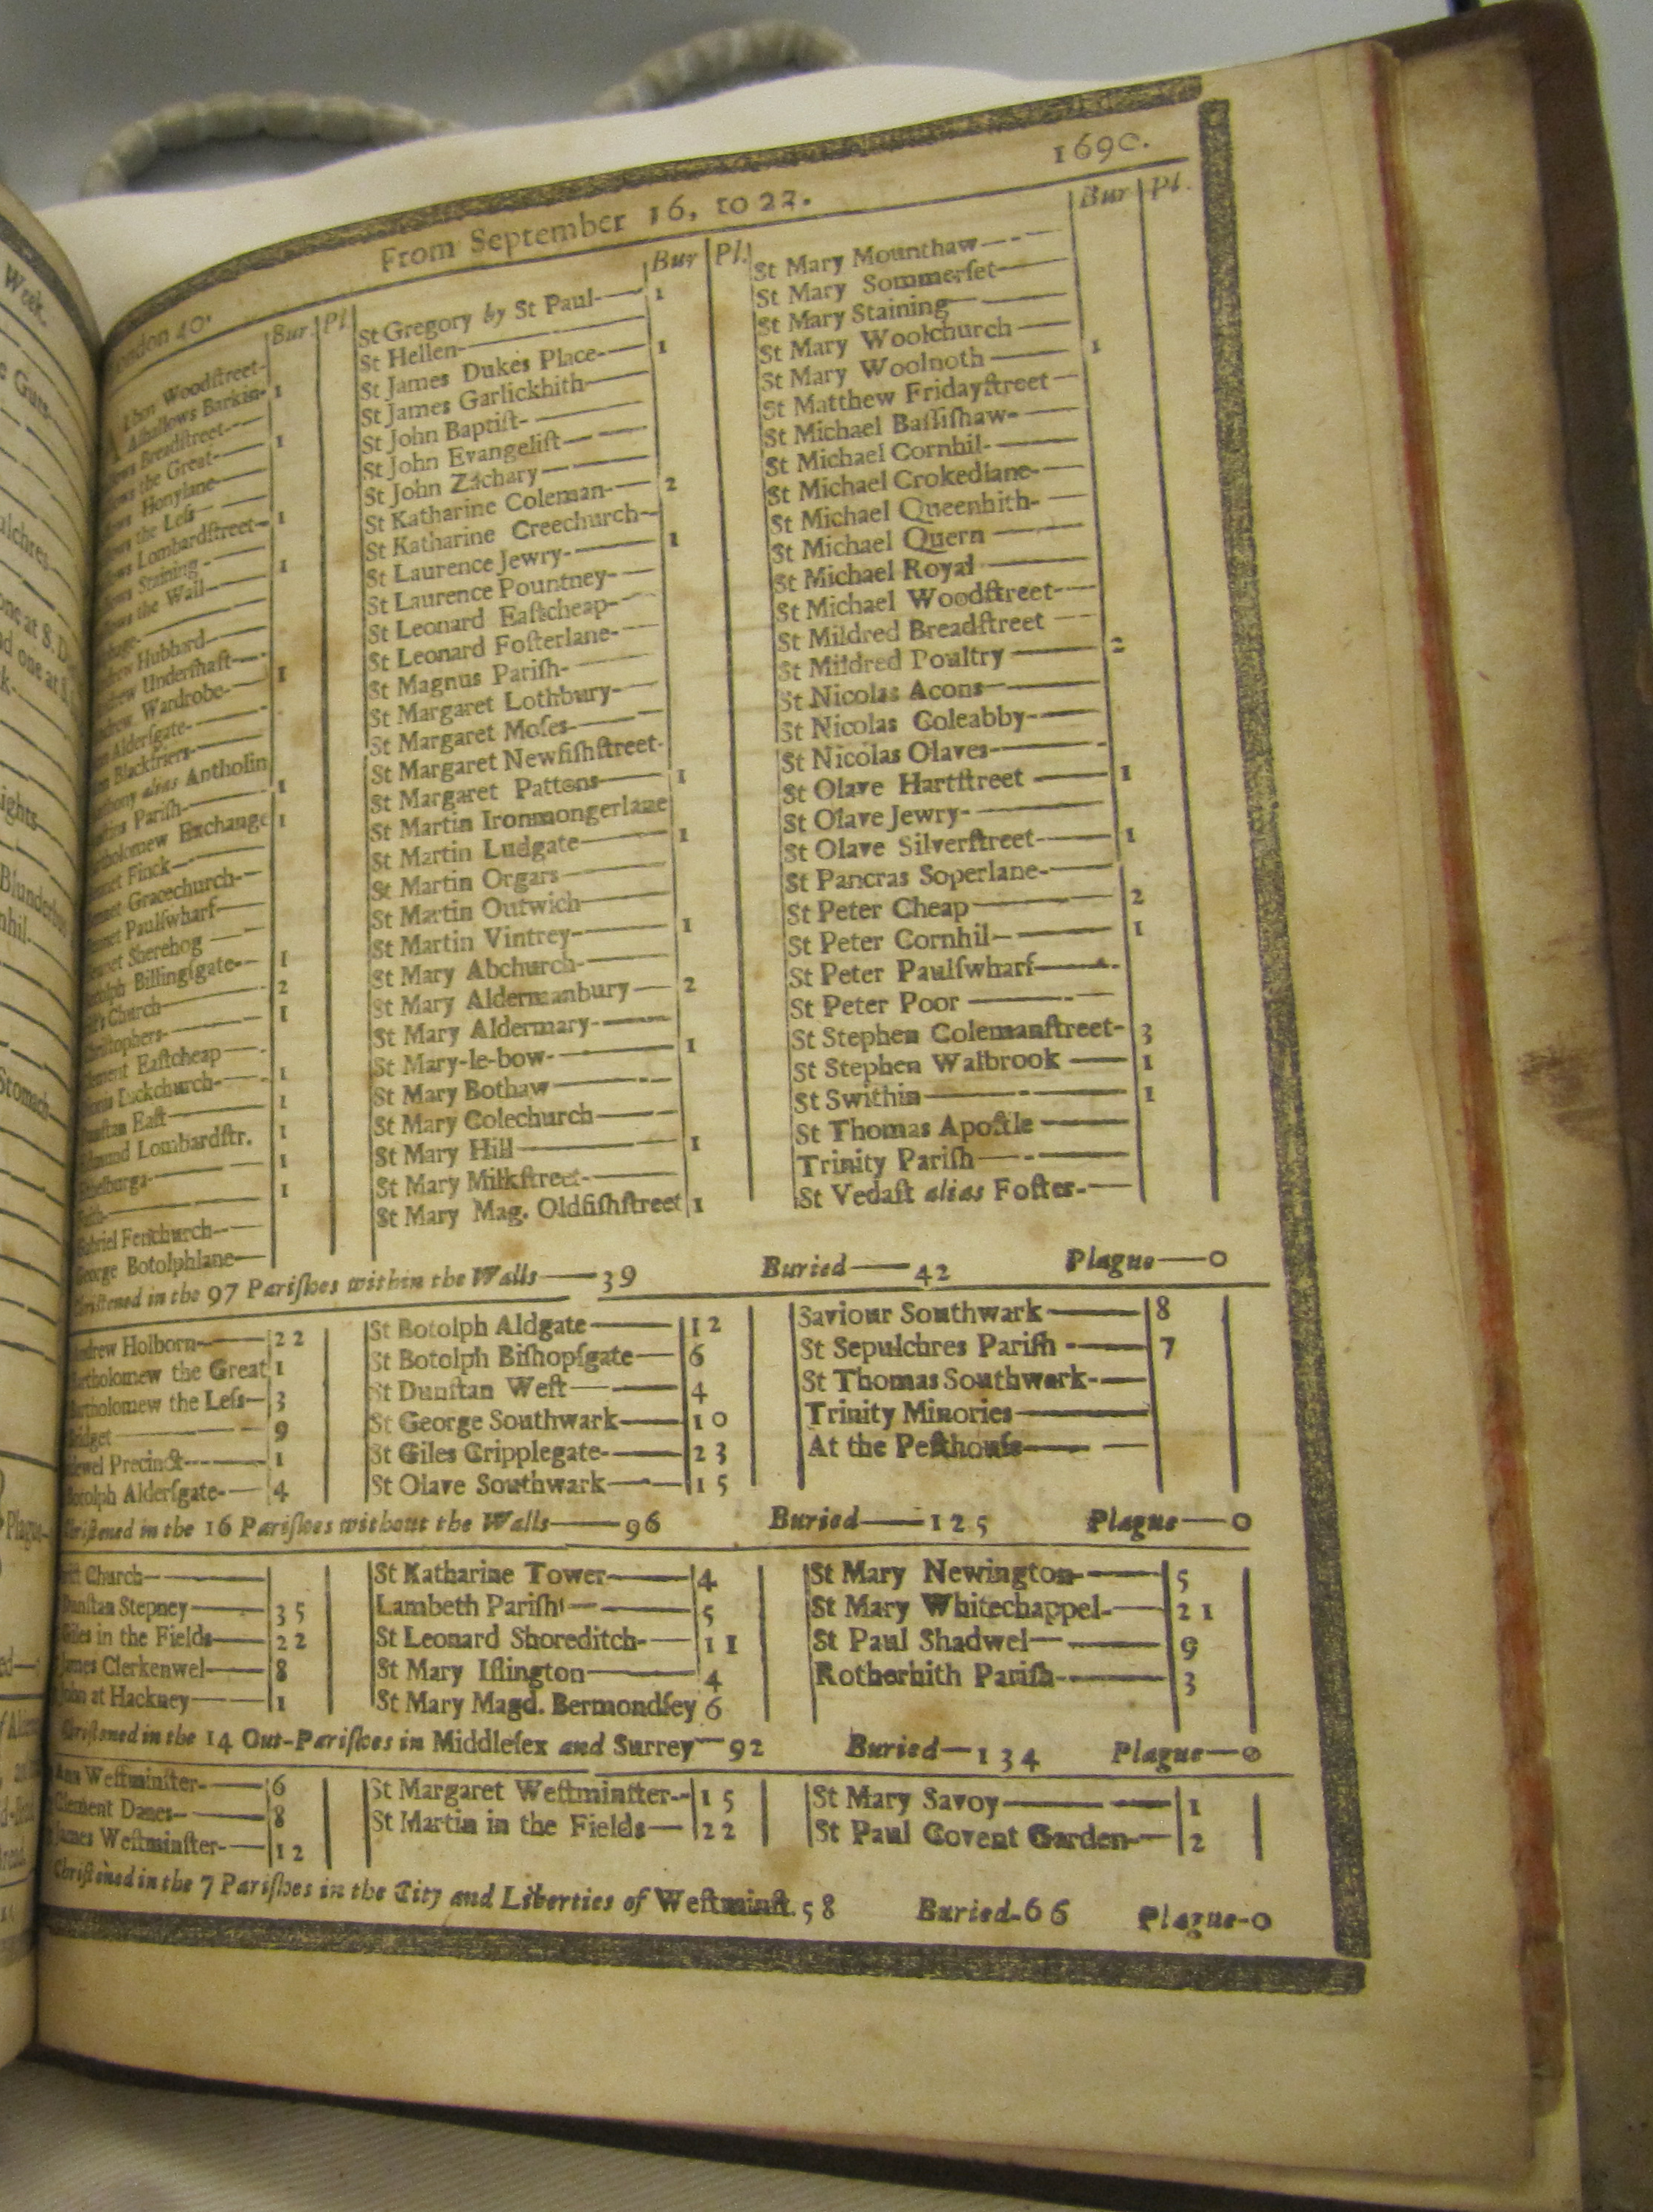 Week.
London 40.
From September 16, to 22.
1690.
Bur. Pl.
Alban Woodſtreet-
Alhallows Barkin- 1
lows Breadſtreet-
lows the Great- 1
lows Honylane-
lows the Leſs-
lows Lombardſtreet- 1
lows Staining-
lows the Wall- 1
phage-
drew Hubbard-
drew Underſhaft-
drew Wardrobe- 1
nn Alderſgate-
nn Blackfriers-
thony alias Antholin
ſtins Pariſh- 1
rtholomew Exchange 1
ennet Finck-
ennet Gracechurch-
ennet Paulſwharf-
ennet Sherehog
otolph Billingſgate- 1
Church- 2
Chriſtophers- 1
lement Eaſtcheap-
Dionis Backchurch- 1
unſtan Eaſt- 1
dmund Lombardſtr. 1
thelburga- 1
Faith- 1
Gabriel Fenchurch-
George Botolphlane-
Bur Pl.
St Gregory by St Paul- 1
St Hellen-
St James Dukes Place- 1
St James Garlickhith-
St John Baptiſt-
St John Evangeliſt-
St John Zachary-
St Katharine Coleman- 2
St Katharine Creechurch-
St Laurence Jewry- 1
St Laurence Pountney-
St Leonard Eaſtcheap-
St Leonard Foſterlane-
St Magnus Pariſh-
St Margaret Lothbury-
St Margaret Moſes-
St Margaret Newfiſhſtreet-
St Margaret Pattons- 1
St Martin Ironmongerlane
St Martin Ludgate- 1
St Martin Orgars-
St Martin Outwich-
St Martin Vintrey- 1
St Mary Abchurch-
St Mary Aldermanbury- 2
St Mary Aldermary-
St Mary-le-bow- 1
St Mary Bothaw-
St Mary Colechurch-
St Mary Hill- 1
St Mary Milkſtreet-
St Mary Mag. Oldfiſhſtreet 1
Bur Pl.
St Mary Mounthaw-
St Mary Sommerſet-
St Mary Staining-
St Mary Woolchurch-
St Mary Woolnoth- 1
St Matthew Fridayſtreet-
St Michael Baſſiſhaw-
St Michael Cornhil-
St Michael Crokedlane-
St Michael Queenhith-
St Michael Quern-
St Michael Royal-
St Michael Woodſtreet-
St Mildred Breadſtreet-
St Mildred Poultry- 2
St Nicolas Acons-
St Nicolas Coleabby-
St Nicolas Olaves-
St Olave Hartſtreet- 1
St Olave Jewry-
St Olave Silverſtreet- 1
St Pancras Soperlane-
St Peter Cheap- 2
St Peter Cornhil- 1
St Peter Paulſwharf-
St Peter Poor-
St Stephen Colemanſtreet- 3
St Stephen Walbrook- 1
St Swithin- 1
St Thomas Apoſtle-
Trinity Pariſh-
St Vedaſt alias Foſter-
Chriſtened in the 97 Pariſhes within the Walls—39 Buried—42 Plague—0
ndrew Holborn- 22
artholomew the Great 1
artholomew the Leſs- 3
ridget- 9
dewel Precinct- 1
Botolph Alderſgate- 4
St Botolph Aldgate- 12
St Botolph Biſhopſgate- 6
St Dunſtan Weſt- 4
St George Southwark- 10
St Giles Cripplegate- 23
St Olave Southwark- 15
Saviour Southwark- 8
St Sepulchres Pariſh- 7
St Thomas Southwark-
Trinity Minories-
At the Peſthouſe-
Chriſtened in the 16 Pariſhes without the Walls—96 Buried—125 Plague—0
riſt Church-
Dunſtan Stepney- 35
Giles in the Fields- 22
James Clerkenwel- 8
John at Hackney- 1
St Katharine Tower- 4
Lambeth Pariſh- 5
St Leonard Shoreditch- 11
St Mary Iſlington- 4
St Mary Magd. Bermondſey 6
St Mary Newington- 5
St Mary Whitechappel- 21
St Paul Shadwel- 9
Rotherhith Pariſh- 3
Chriſtened in the 14 Out-Pariſhes in Middleſex and Surrey—92 Buried—134 Plague—0
Ann Weſtminſter- 6
Clement Danes- 8
James Weſtminſter- 12
St Margaret Weſtminſter- 15
St Martin in the Fields- 22
St Mary Savoy- 1
St Paul Covent Garden- 2
Chriſtened in the 7 Pariſhes in the City and Liberties of Weſtminſt. 58 Buried-66 Plague-0